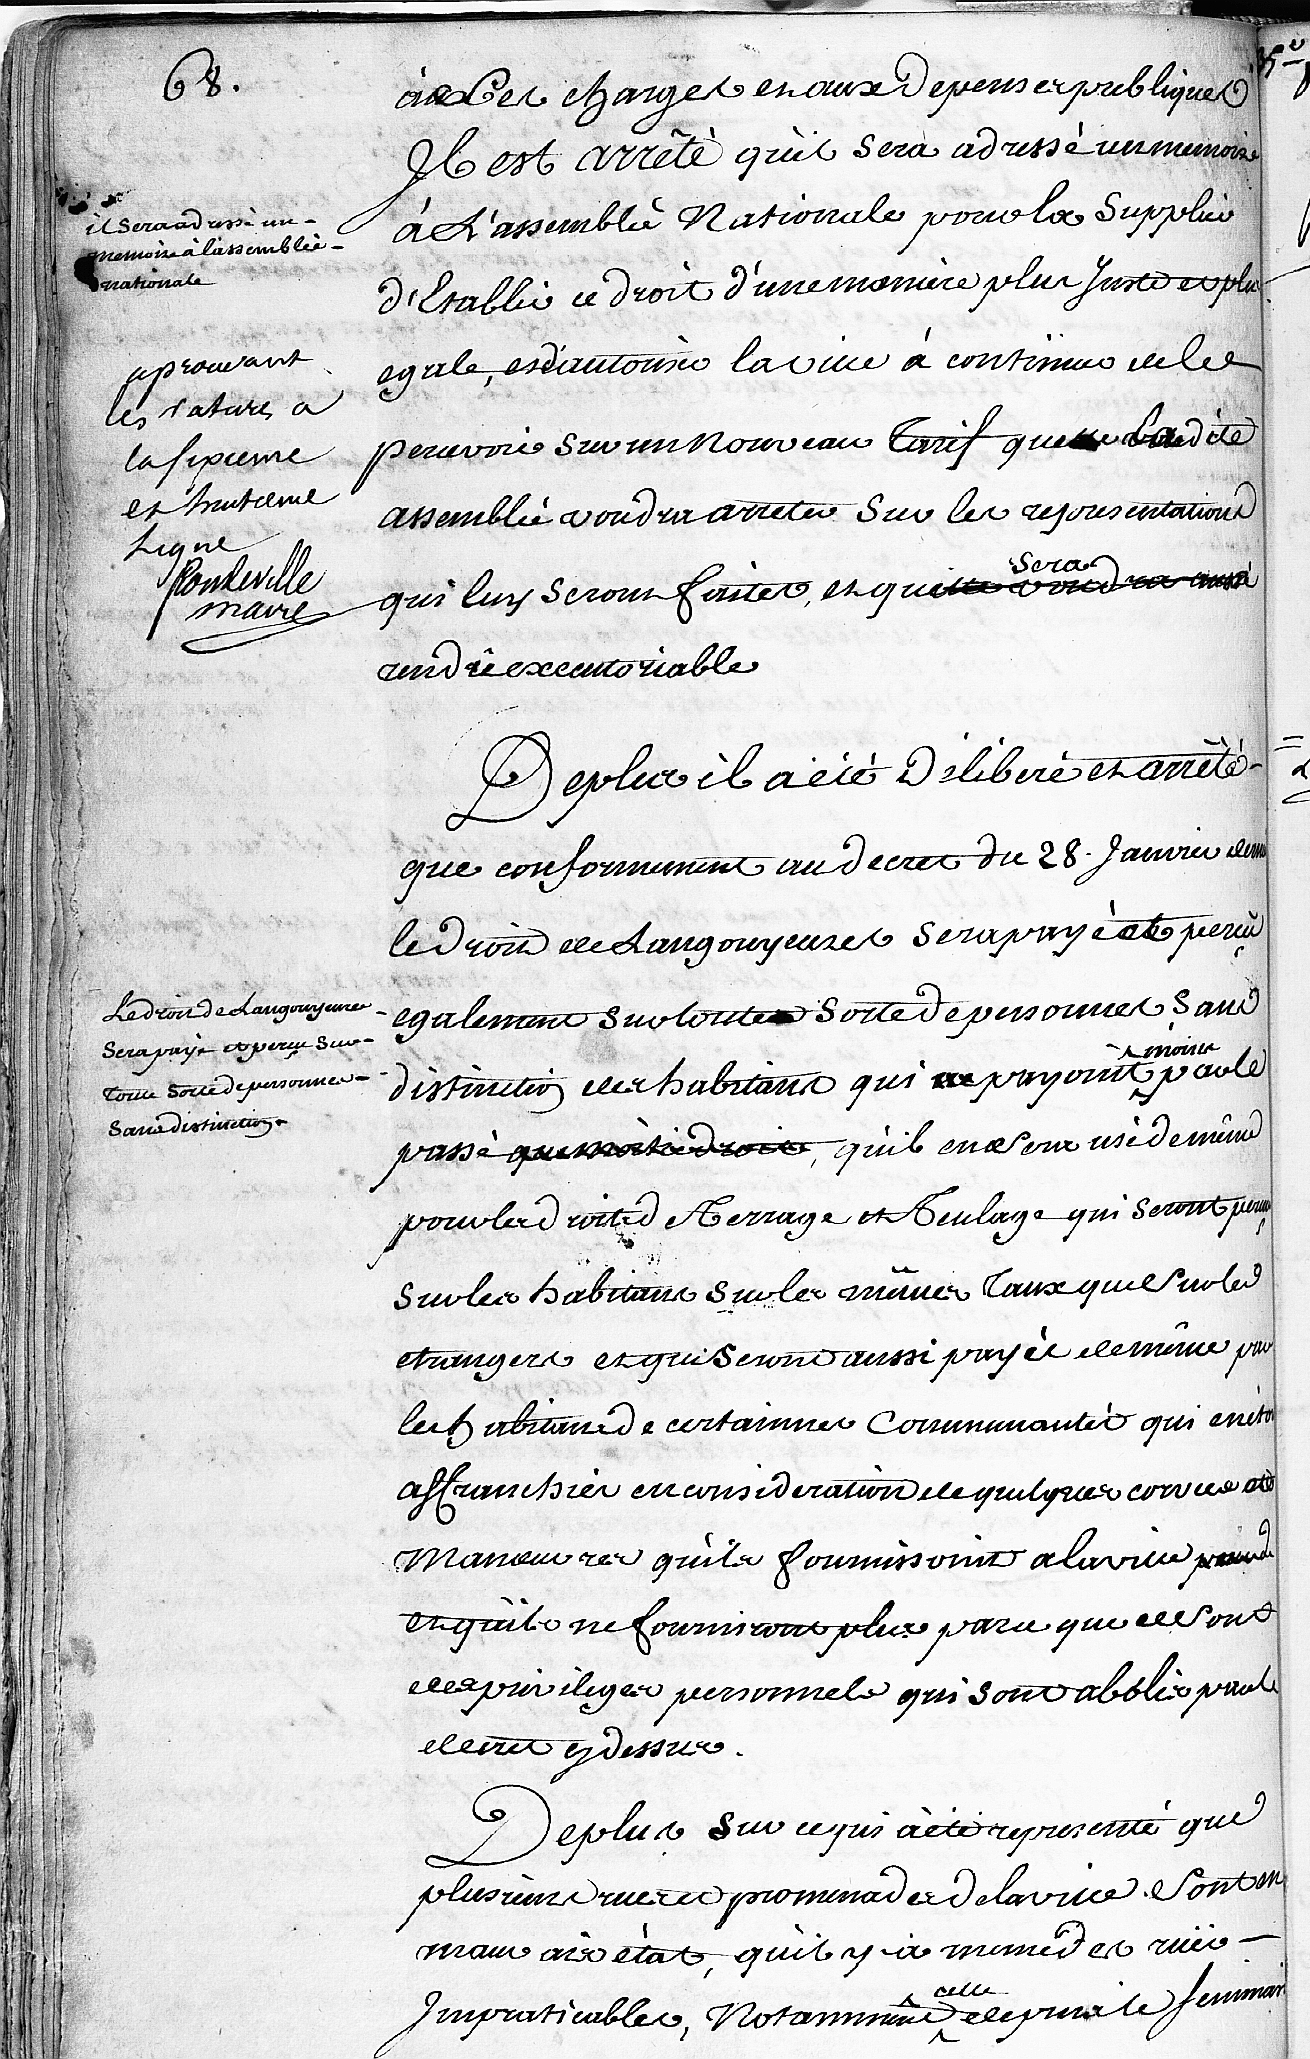 68.
à Ces charges et aux Depenses publiques
Il est arrêté qu'il sera adressé un memoire
à L'assemblée Nationale pour la Supplier
d'Etablir ce droit d'une maniere plus Juste et plus
egale, et d'autoriser la ville à continuer de le
percevoir sur un Nouveau Tarif que ladite
assemblée voudra arreter Sur les representations
qui luy seront faites, et qui sera
rendre executoriable
il sera adressé un
memoire à l'assemblée
nationale
aprouvant
les rature a
la sixieme
et huitieme
Ligne
Pontleville
maire
De plus il a été Déliberé et arrêté
que conformement au decret du 28. Janvier
le droit de Langoyeuses sera payé et perçu
egalement sur toutes Sorte de personnes Sans
distinction des habitans qui payoint moins par le
passé que moitié droit, qu'il en sera usé de même
pour les droits de Terrage et Teulage qui seront perçus
Sur les habitans Sur les mêmes Taux que Sur les
etrangers et qui Seront aussi payés de même par
les habitans de certainnes Communautés qui en
affranchies en consideration de quelques corvées et
Manœuvres qu'ils fournissoint a la ville
et qu'ils ne fourniront plus parce que ce Sont
des privileges personnels qui sont abolis par le
decret cy dessus.
Le droit de Langoyeuses
Sera payé et perçu Sur
toute Sorte de personnes
Sans distinction
De plus Sur ce qui a été representé que
plusieurs rues et promenades de la ville Sont en
mauvais état, qu'il y a meme des rües
Impraticables, Notamment celle depuis le Seminaire